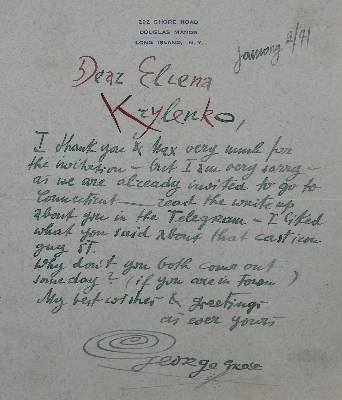 202 SHORE ROAD
DOUGLAS MANOR
LONG ISLAND, N. Y.
January 2/41
Dear Eliena
Krylenko,
I thank you & Max very much for
the invitation – but I am very sorry –
as we are already invited to go to
Connecticut — read the write up
about you in the Telegram – I liked
what you said about that cast iron
guy ST.
Why don't you both come out
some day? (if you are in town)
My best wishes & greetings
as ever yours
George Grosz